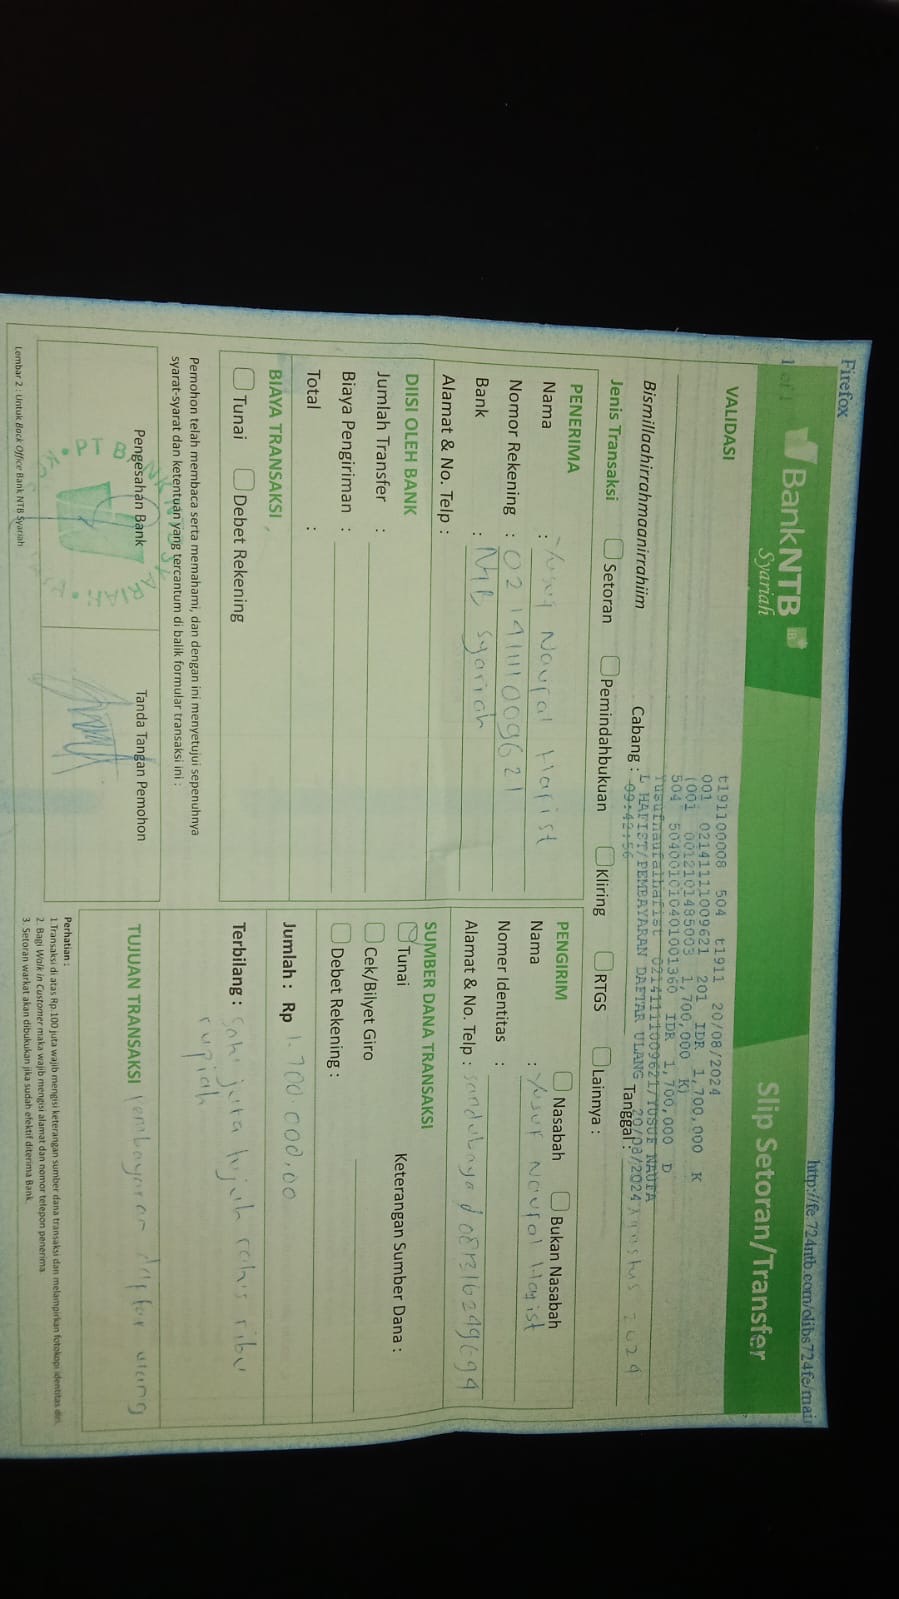 Firefox
http://fe.724ntb.com/olibs724fe/mai
1 of 1
BankNTB
Syariah
Slip Setoran/Transfer
VALIDASI
t191100008 504 t1911 20/08/2024
001 02141111009621 201 IDR 1,700,000 K
(001 0012101485003 1,700,000 K)
504 504001010401001360 IDR 1,700,000 D
Yusufnaufalhafist 02141111009621/YUSUF NAUFA
L HAFIST/PEMBAYARAN DAFTAR ULANG 20/08/2024
09:42:56
Bismillaahirrahmaanirrahiim
Cabang :
Tanggal : Agustus 2024
Jenis Transaksi
Setoran
Pemindahbukuan
Kliring
RTGS
Lainnya :
PENERIMA
Nama : Yusuf Naufal Hafist
Nomor Rekening : 02141111009621
Bank : NTB Syariah
Alamat & No. Telp :
PENGIRIM
Nasabah
Bukan Nasabah
Nama : Yusuf Naufal Hafist
Nomer Identitas :
Alamat & No. Telp :
DIISI OLEH BANK
Jumlah Transfer :
Biaya Pengiriman :
Total :
SUMBER DANA TRANSAKSI
Tunai
Keterangan Sumber Dana :
Cek/Bilyet Giro
Debet Rekening :
BIAYA TRANSAKSI
Tunai
Debet Rekening
Jumlah : Rp 1.700.000,00
Terbilang : Satu juta tujuh ratus ribu
rupiah
Pemohon telah membaca serta memahami, dan dengan ini menyetujui sepenuhnya
syarat-syarat dan ketentuan yang tercantum di balik formular transaksi ini :
Pengesahan Bank
Tanda Tangan Pemohon
TUJUAN TRANSAKSI Pembayaran daftar ulang
Perhatian :
1.Transaksi di atas Rp.100 juta wajib mengisi keterangan sumber dana transaksi dan melampirkan fotokopi identitas diri.
2. Bagi Walk in Customer maka wajib mengisi alamat dan nomor telepon penerima
3. Setoran warkat akan dibukukan jika sudah efektif diterima Bank
Lembar 2 : Untuk Back Office Bank NTB Syariah